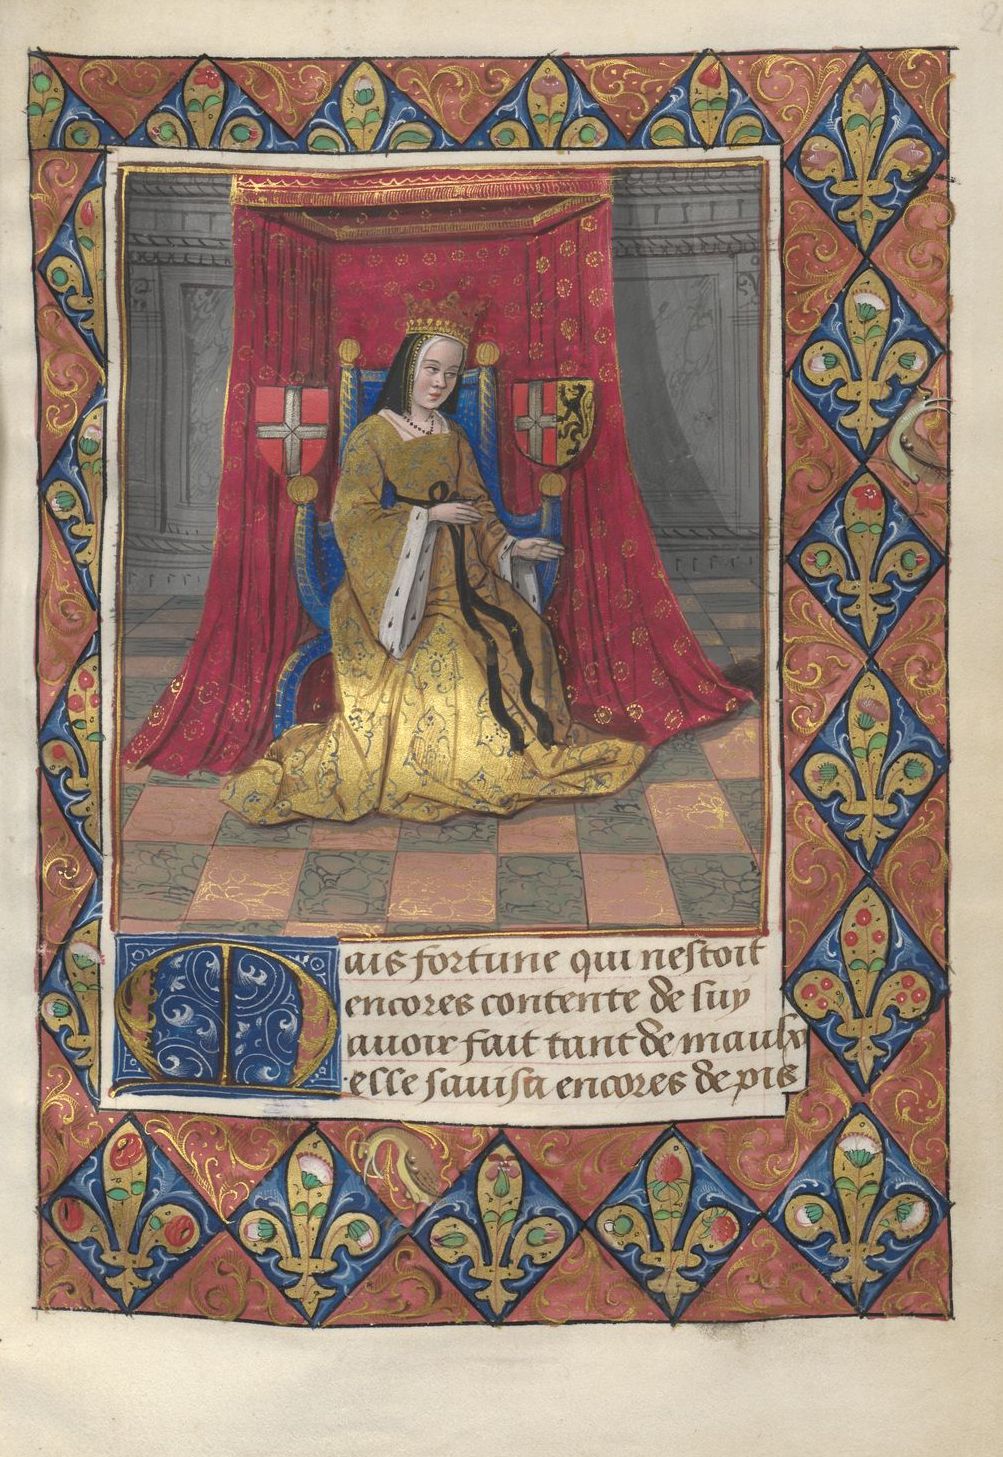 Mais fortune qui nestoit
encores contente de luy
auoir fait tant de maulx
elle sauisa encores de pis